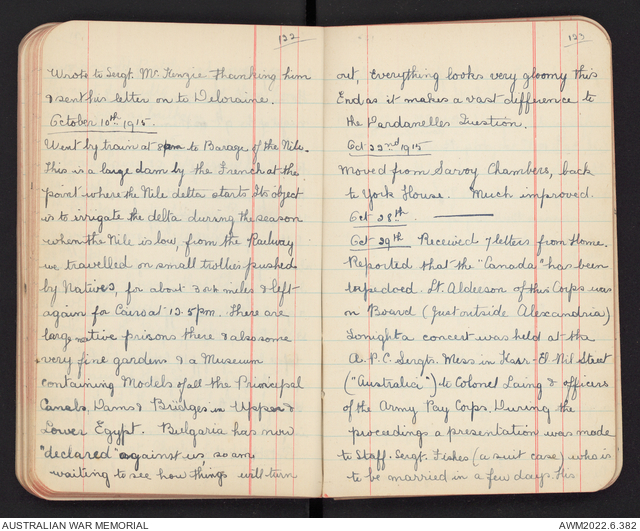 122
Wrote to Sergt. Mc Kenzie thanking him
& sent his letter on to Deloraine.
October 10th 1915.
Went by train at 8am to Barage of the Nile.
This is a large dam by the French at the
point where the Nile delta starts Its object
is to irrigate the delta during the season
when the Nile is low, from the Railway
we travelled on small trollies pushed
by Natives, for about 3 or 4 miles & left
again for Cairo at 12.5pm. There are
large native prisons there & also some
very fine gardens & a Museum
containing Models of all the Principal
Canals, Dams & Bridges in Upper &
Lower Egypt. Bulgaria has now
"declared" against us, so am
waiting to see how things will turn
123
out, Everything looks very gloomy this
End as it makes a vast difference to
the Dardanelles Question.
Oct 22nd 1915
Moved from Savoy Chambers, back
to York House. Much improved.
Oct 28th.
Oct 29th Received 7 letters from Home.
Reported that the "Canada" has been
torpedoed. Lt. Alderson of this Corps was
on Board (Just outside Alexandria)
Tonight a concert was held at the
A.P.C. Sergts. Mess in Kasr-El-Nil Street
("Australia") to Colonel Laing & officers
of the Army Pay Corps. During the
proceedings a presentation was made
to Staff. Sergt. Fishes (a suit case) who is
to be married in a few days. His
AUSTRALIAN WAR MEMORIAL
AWM2022.6.382